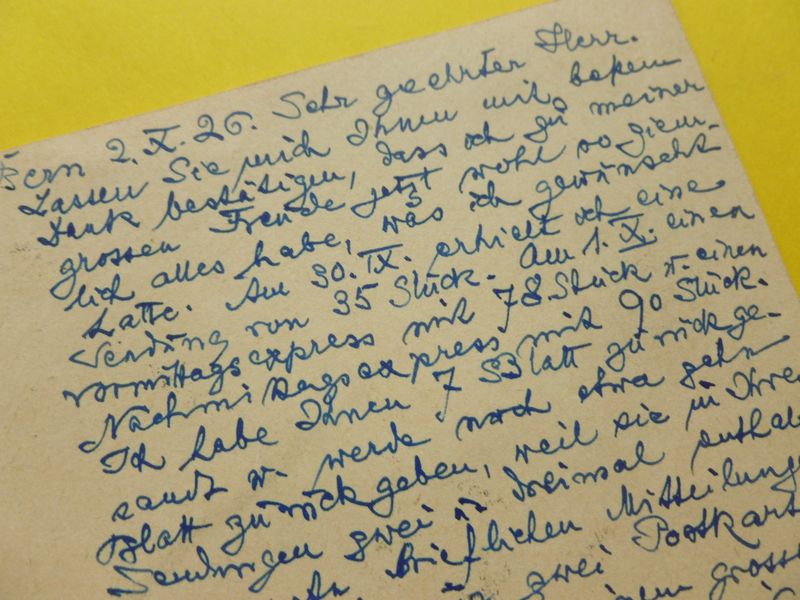 Bern 2. X. 26. Sehr geehrter Herr.
Lassen Sie mich Ihnen mit bestem
Dank bestätigen, dass ich zu meiner
grossen Freude jetzt wohl so ziem-
lich alles habe, was ich gewünscht
hatte. Am 30. IX. erhielt ich eine
Sendung von 35 Stück. Am 1. X. einen
Vormittagsexpress mit 78 Stück u. einen
Nachmittagsexpress mit 90 Stück.
Ich habe Ihnen 7 Blatt zurückge-
sandt u. werde noch etwa zehn
Blatt zurückgeben, weil sie in Ihren
Sendungen zwei u. dreimal enthal
brieflichen Mitteilung
zwei Postkart
einem gross